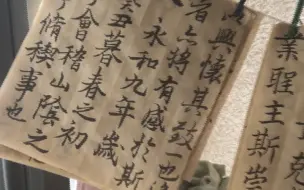 克
業
主斯
興懷其致一也
者亦將有感於斯
永和九年歲
癸丑暮春之初
會稽山陰之
脩稧事也